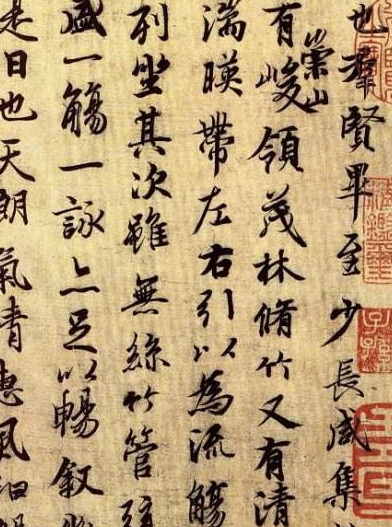 也羣賢畢至少長咸集
有崇山峻領茂林脩竹又有清
湍暎帶左右引以為流觴
列坐其次雖無絲竹管
盛一觴一詠亦足以暢敘
是日也天朗氣清惠風和